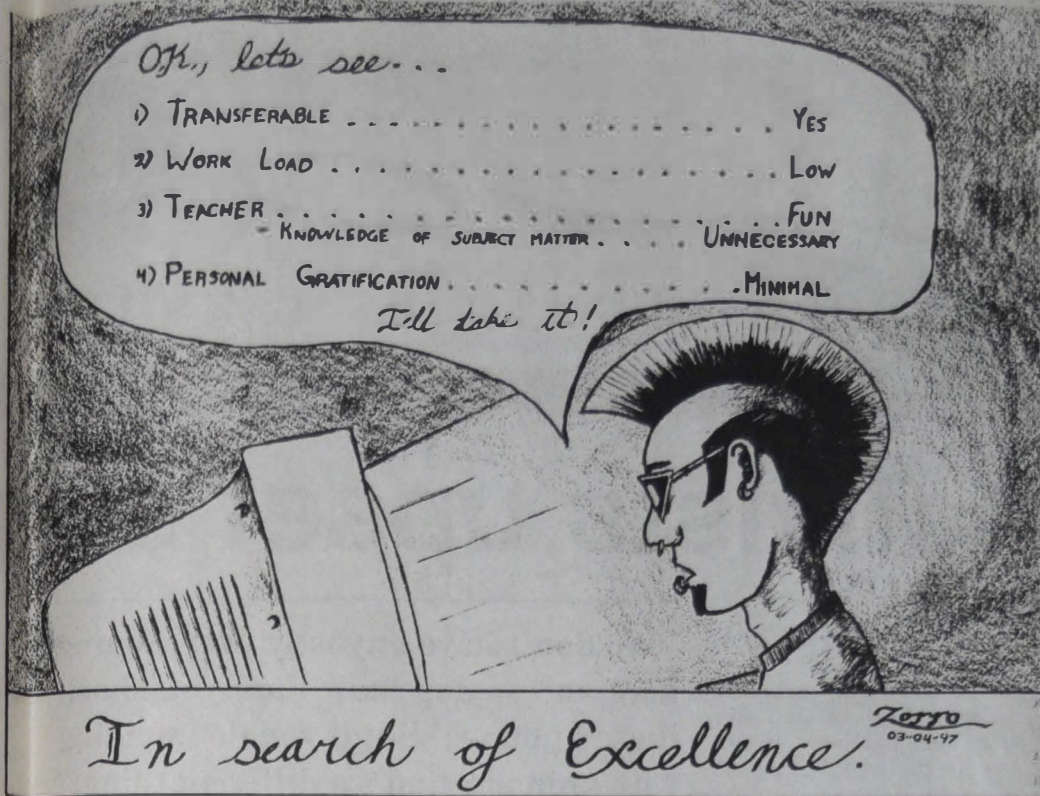 OK., let's see...
1) TRANSFERABLE .................. YES
2) WORK LOAD .................. LOW
3) TEACHER .................. FUN
- KNOWLEDGE OF SUBJECT MATTER ..... UNNECESSARY
4) PERSONAL GRATIFICATION ............ MINIMAL
I'll take it!
In search of Excellence.
Zorro
03-04-97